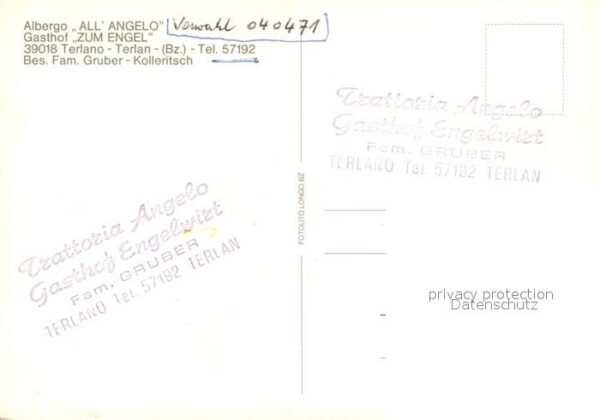 Albergo „ALL' ANGELO" Vorwahl 040471
Gasthof „ZUM ENGEL"
39018 Terlano - Terlan - (Bz.) - Tel. 57192
Bes. Fam. Gruber - Kolleritsch
Trattoria Angelo
Gasthof Engelwirt
Fam. GRUBER
TERLANO Tel. 57192 TERLAN
FOTOLITO LONGO BZ
Trattoria Angelo
Gasthof Engelwirt
Fam. GRUBER
TERLANO Tel. 57192 TERLAN
privacy protection
Datenschutz